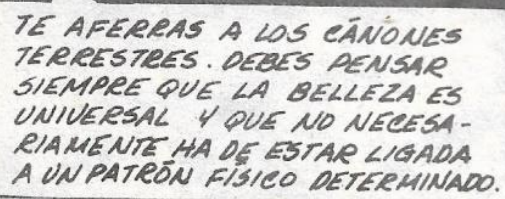 TE AFERRAS A LOS CÁNONES
TERRESTRES. DEBES PENSAR
SIEMPRE QUE LA BELLEZA ES
UNIVERSAL Y QUE NO NECESA-
RIAMENTE HA DE ESTAR LIGADA
A UN PATRÓN FÍSICO DETERMINADO.